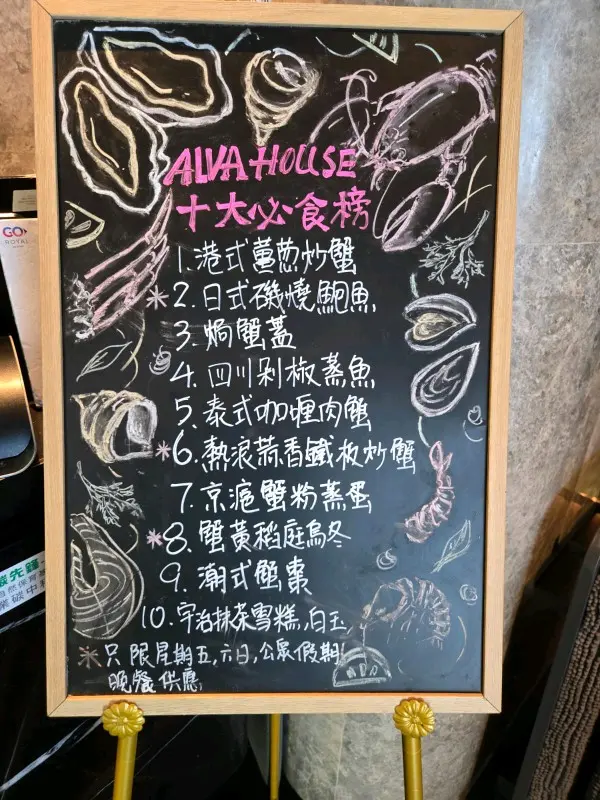 ALVA HOUSE
十大必食榜
1. 港式薑葱炒蟹
*2. 日式磯燒鮑魚
3. 焗蟹蓋
4. 四川剁椒蒸魚
5. 泰式咖喱肉蟹
*6. 熱浪蒜香鐵板炒蟹
7. 京滬蟹粉蒸蛋
*8. 蟹黃稻庭烏冬
9. 潮式蟹棗
10. 宇治抹茶雪糕,白玉
*只限星期五,六日,公眾假期
晚餐供應
GO
ROYAL